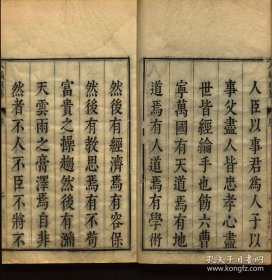 人臣以事君爲人子以
事父盡人皆忠孝心盡
世皆經論手也飭六曹
寧萬國有天道焉有地
道焉有人道焉有學術
然後有經濟焉有容保
然後有教思焉有不苟
富貴之操趨然後有瀰
天雲雨之膏澤焉自非
然者不人不臣不將不